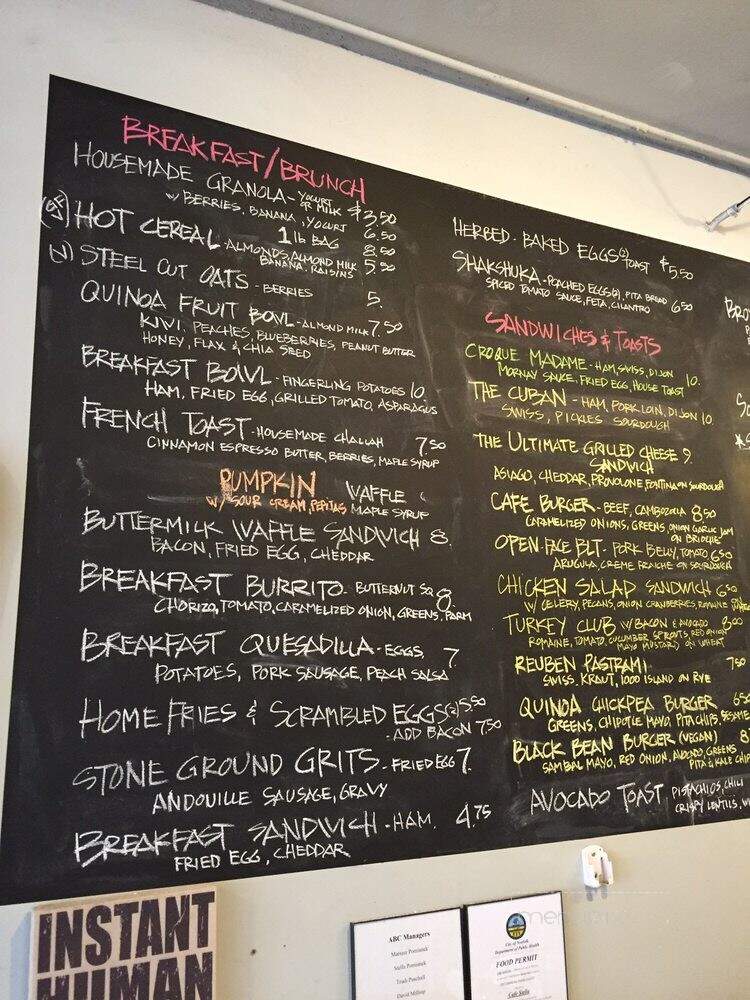 BREAKFAST/BRUNCH
HOUSEMADE GRANOLA - YOGURT OR MILK $3.50
W/ BERRIES, BANANA, YOGURT 6.50
1 lb BAG 8.50
(GF) HOT CEREAL - ALMONDS, ALMOND MILK 5.50
BANANA, RAISINS
STEEL CUT OATS - BERRIES 5.
QUINOA FRUIT BOWL - ALMOND MILK 7.50
KIWI, PEACHES, BLUEBERRIES, PEANUT BUTTER
HONEY, FLAX & CHIA SEED
BREAKFAST BOWL - FINGERLING POTATOES 10.
HAM, FRIED EGG, GRILLED TOMATO, ASPARAGUS
FRENCH TOAST - HOUSEMADE CHALLAH 7.50
CINNAMON ESPRESSO BUTTER, BERRIES, MAPLE SYRUP
PUMPKIN WAFFLE
W/ SOUR CREAM, PEPITAS MAPLE SYRUP
BUTTERMILK WAFFLE SANDWICH 8.
BACON, FRIED EGG, CHEDDAR
BREAKFAST BURRITO - BUTTERNUT SQ. 8.
CHORIZO, TOMATO, CARAMELIZED ONION, GREENS, PARM
BREAKFAST QUESADILLA - EGGS, 7
POTATOES, PORK SAUSAGE, PEACH SALSA
HOME FRIES & SCRAMBLED EGGS(2) 5.50
- ADD BACON 7.50
STONE GROUND GRITS - FRIED EGG 7.
ANDOUILLE SAUSAGE, GRAVY
BREAKFAST SANDWICH - HAM. 4.75
FRIED EGG, CHEDDAR
HERBED - BAKED EGGS(2) TOAST $5.50
SHAKSHUKA - POACHED EGGS(2), PITA BREAD
SPICED TOMATO SAUCE, FETA, CILANTRO 6.50
SANDWICHES & TOASTS
CROQUE MADAME - HAM, SWISS, DIJON 10.
MORNAY SAUCE, FRIED EGG, HOUSE TOAST
THE CUBAN - HAM, PORK LOIN, DIJON 10
SWISS, PICKLES SOURDOUGH
THE ULTIMATE GRILLED CHEESE 9.
SANDWICH
ASIAGO, CHEDDAR, PROVOLONE, FONTINA ON SOURDOUGH
CAFE BURGER - BEEF, CAMBOZOLA 8.50
CARAMELIZED ONIONS, GREENS, ONION GARLIC JAM
ON BRIOCHE
OPEN-FACE BLT - PORK BELLY, TOMATO 6.50
ARUGULA, CREME FRAICHE ON SOURDOUGH
CHICKEN SALAD SANDWICH 6.50
W/ CELERY, PECANS, ONION CRANBERRIES, ROMAINE
TURKEY CLUB W/ BACON & AVOCADO 8.00
ROMAINE, TOMATO, CUCUMBER SPROUTS, RED ONION
MAYO MUSTARD) ON WHEAT
REUBEN PASTRAMI 7.50
SWISS, KRAUT, 1000 ISLAND ON RYE
QUINOA CHICKPEA BURGER 6.50
GREENS, CHIPOTLE MAYO, PITA CHIPS, SESAME
BLACK BEAN BURGER (VEGAN) 8
SAMBAL MAYO, RED ONION, AVOCADO, GREENS
PITA & KALE CHIPS
AVOCADO TOAST PISTACHIOS, CHILI
CRISPY LENTILS,
INSTANT
HUMAN
ABC Managers
City of Norfolk
Department of Public Health
FOOD PERMIT
Cafe Stella